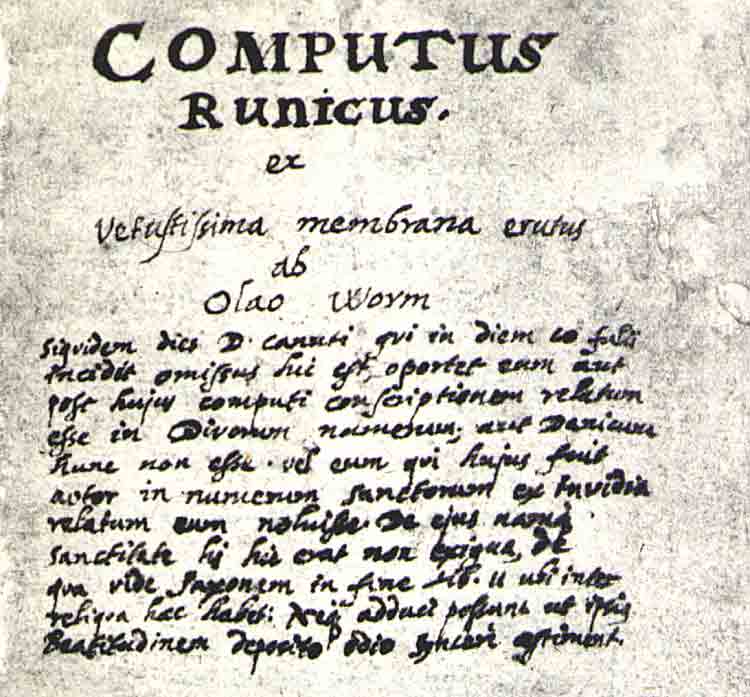 COMPUTUS
Runicus.
ex
Vetustissima membrana erutus
ab
Olao Worm
Siquidem dies D. Canuti qvi in diem 10 Julii
incidit omissus hic est, oportet eum aut
post hujus computi conscriptionem relatum
esse in Divorum numerum. aut Danicum
hunc non esse. vel eum qvi hujus fuit
autor in numerum sanctorum ex invidia
relatum eum noluisse. De ejus namq
sanctitate lis hic erat non exigua, de
qva vide Saxonem in fine lib. 11 ubi inter
reliqva hæc habet: adduci possunt ut ipsis
Beatitudinem deposito odio sinceri estiment.